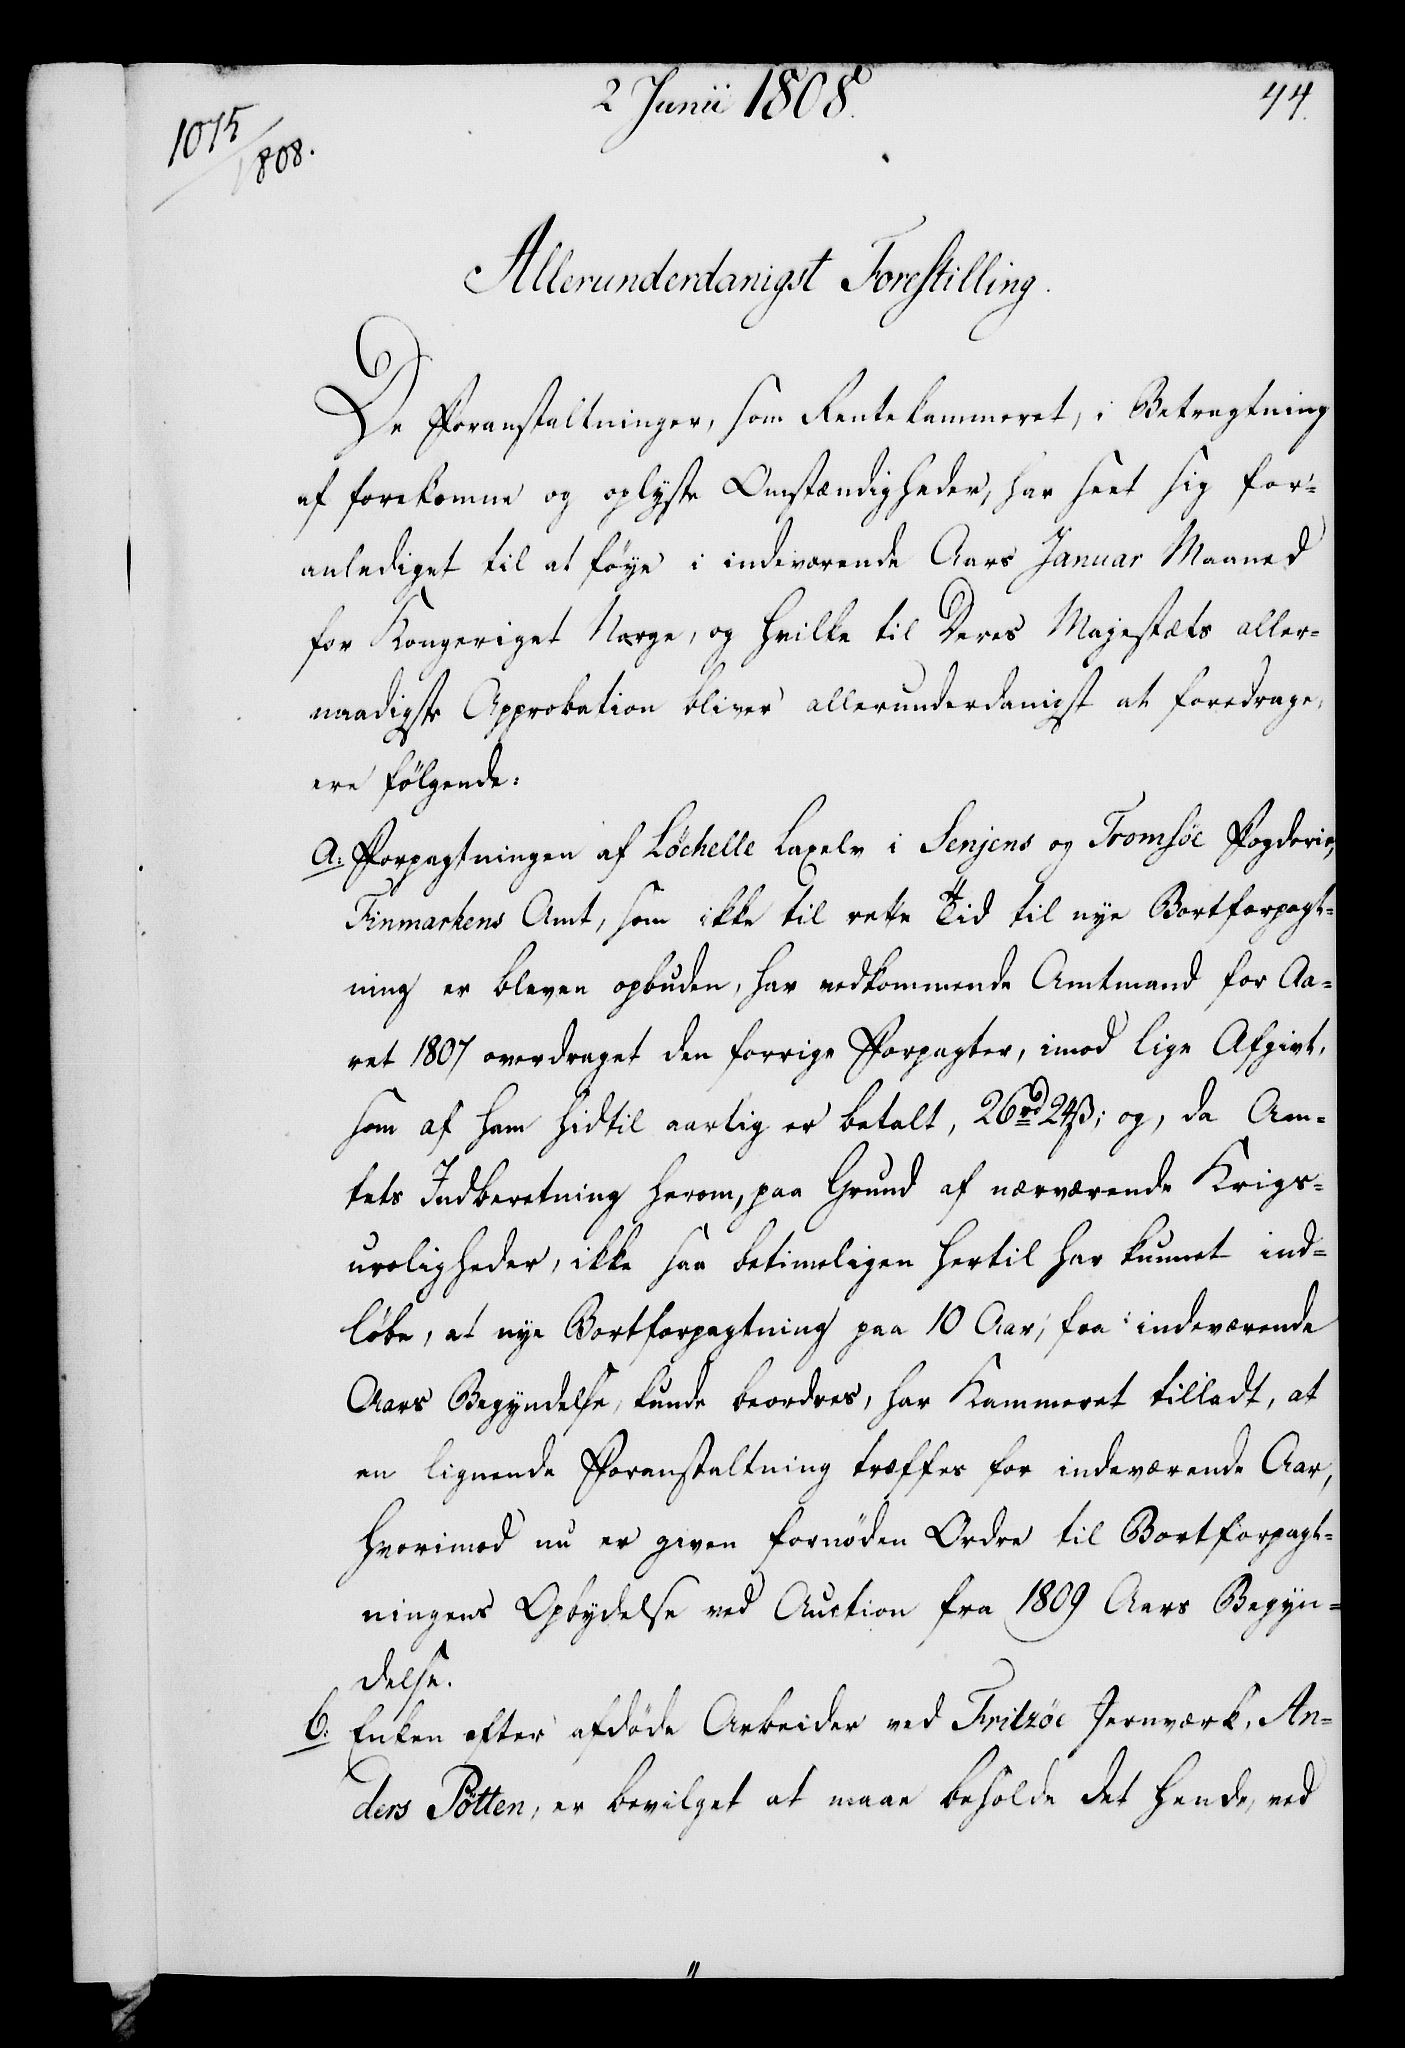 2 Junii 1808.
44.
1075/1808.
Allerunderdanigst Forestilling.
De Foranstaltninger, som Rentekammeret, i Betragtning
af forekomne og oplyste Omstændigheder, har seet sig for-
anlediget til at föye i indeværende Aars Januar Maaned
for Kongeriget Norge, og hvilke til Deres Majestæts aller-
naadigste Approbation bliver allerunderdanigst at foredrage,
ere fölgende:
a: Forpagtningen af Löchelle Laxelv i Senjens og Tromsöe Fogderie,
Finmarkens Amt, som ikke til rette Tid til nye Bortforpagt-
ning er bleven opbuden, har vedkommende Amtmand for Aa-
ret 1807 overdraget den forrige Forpagter, imod lige Afgivt,
som af ham hidtil aarlig er betalt, 26 rd 24 ß; og, da Am-
tets Indberetning herom, paa Grund af nærværende Krigs-
uroligheder, ikke saa betimeligen hertil har kunnet ind-
löbe, at nye Bortforpagtning paa 10 Aar, fra indeværende
Aars Begyndelse, kunde beordres, har Kammeret tilladt, at
en lignende Foranstaltning træffes for indeværende Aar,
hvorimod nu er given fornöden Ordre til Bortforpagt-
ningens Opbydelse ved Auction fra 1809 Aars Begyn-
delse.
b: Enken efter afdöde Arbeider ved Fritzöe Jernværk, An-
ders Pötten, er bevilget at maae beholde det hende, ved